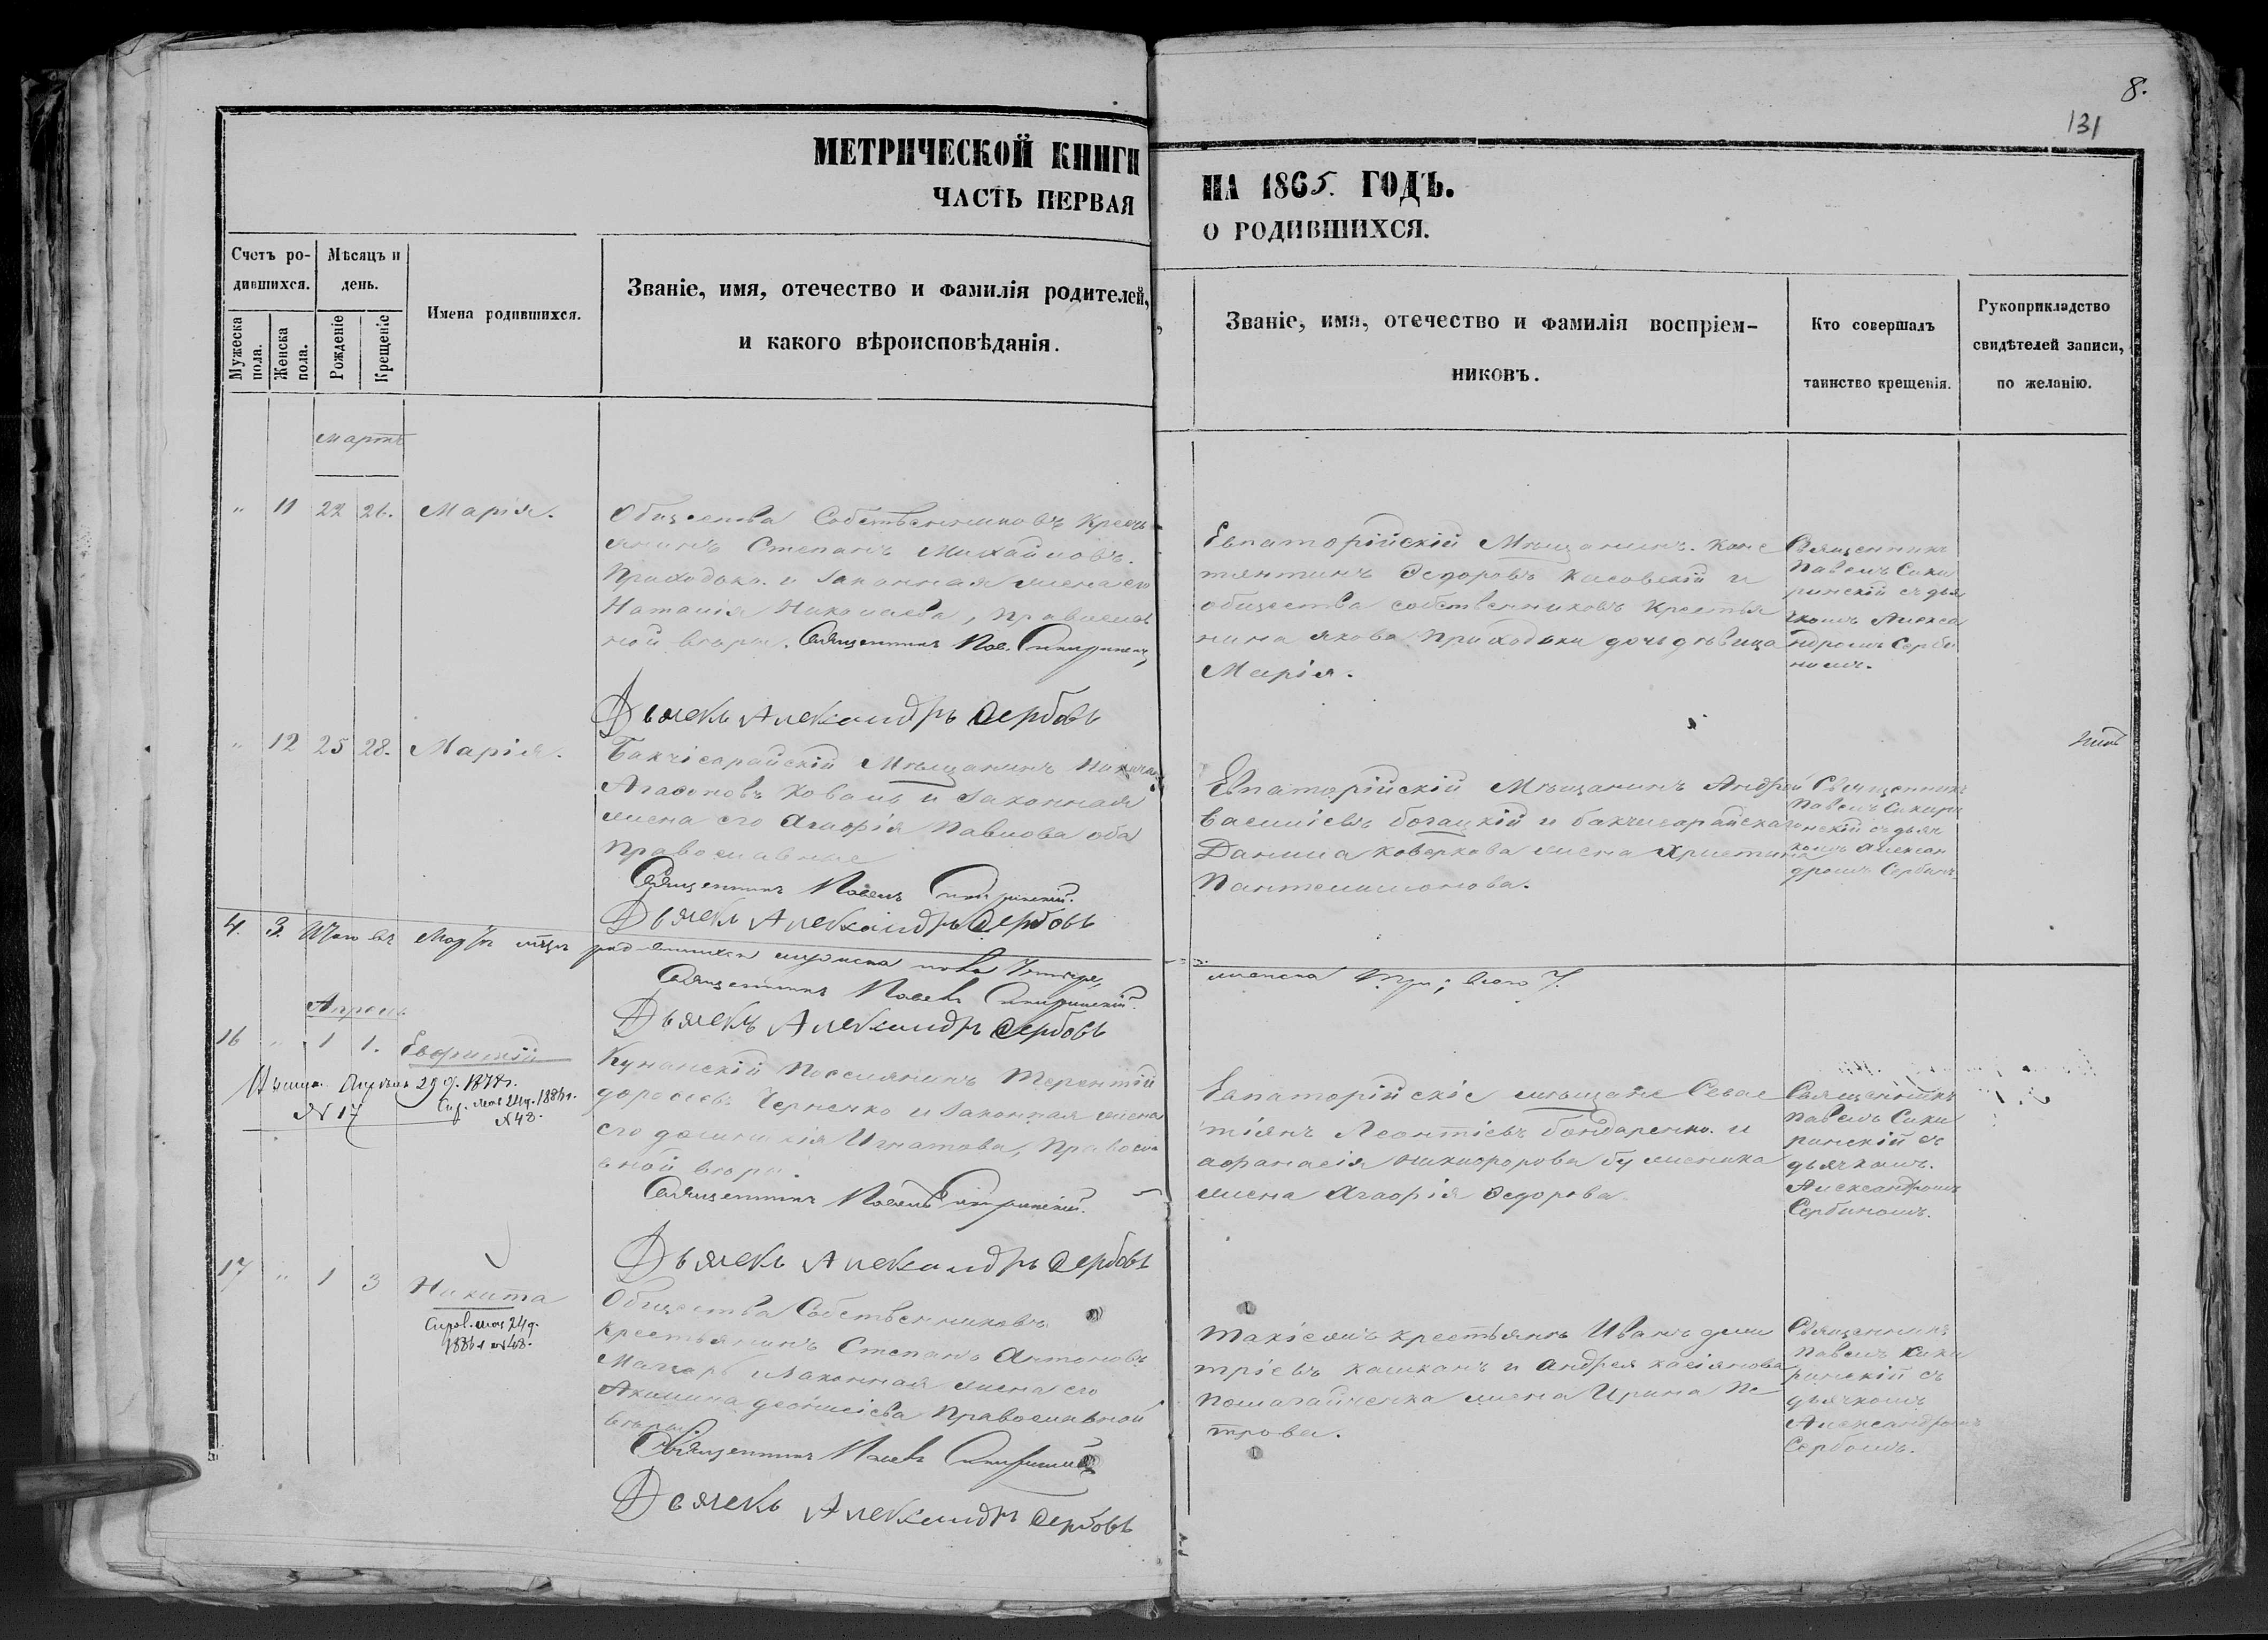 8.
131
МЕТРИЧЕСКОЙ КНИГИ
ЧАСТЬ ПЕРВАЯ
НА 1865. ГОДЪ.
О РОДИВШИХСЯ.
Счетъ ро-
дившихся.
Мужеска
пола.
Женска
пола.
Мѣсяцъ и
день.
Рожденіе
Крещеніе
Имена родившихся.
Званіе, имя, отечество и фамилія родителей,
и какого вѣроисповѣданія.
Званіе, имя, отечество и фамилія воспріем-
никовъ.
Кто совершалъ
таинство крещенія.
Рукоприкладство
свидѣтелей записи,
по желанію.
Мартъ
" 11 22 26. Марія.
Общества Собственниковъ Крест
янинъ Степанъ Михайловъ
Приходько. и законная жена его
Наталія Николаева, православ
ной вѣры. Священникъ Пав.
Дьячекъ Александръ Сербовъ
Евпаторійскій Мѣщанинъ. Конс
тянтинъ Федоровъ и
общества собственниковъ Крестья
нина Якова Приходьки дочь дѣвица
Марія.
Священникъ
Павелъ Сики
ринскій съ дья
чкомъ Алекса
ндромъ Серби
номъ.
" 12 25 28. Марія.
Бакчісарайскій Мѣщанинъ
Агафоновъ Коваль и законная
жена его Агафія Павлова оба
православные
Священникъ Павелъ
Дьячекъ Александръ Сербовъ
Евпаторійскій Мѣщанинъ Андрей
Василіевъ и бакчисарайска
Данила Коверкова жена Христина
Пантелимонова.
Священникъ
Павелъ Сикири
нскій съ дьяч
комъ Алексан
дромъ
4. 3. Итого въ Мартѣ мцѣ родившихся мужеска пола четыре,
женска три; всего 7.
Священникъ Павелъ Сикиринскій.
Дьячекъ Александръ Сербовъ
Апрель
16 " 1 1. Евфимій
29 д. 1878г.
№ 17
мая 24д.
№ 48.
Поселянинъ Терентій
Черненко и законная жена
его Игнатова, Правосла
вной вѣры.
Священникъ Павелъ Сикиринскій.
Дьячекъ Александръ Сербовъ
Евпаторійскіе мѣщане Севас
тіянъ Леонтіевъ бондаренко. и
афанасія никифорова
жена Агафія Федорова
Священникъ
Павелъ Сики
ринскій съ
дьячкомъ.
Александромъ
Сербиномъ.
17 " 1 3 Никита
мая 24д.
№ 48.
Общества Собственниковъ
крестьянинъ Степанъ Антоновъ
и законная жена его
Акилина Православной
вѣры
Священникъ Павелъ Сикиринскій
Дьячекъ Александръ Сербовъ
крестьянъ Иванъ дми
тріевъ и Андрея касіянова
жена Ирина Пе
трова.
Священникъ
Павелъ Сики
ринскій съ
дьячкомъ
Александромъ
Сербомъ.